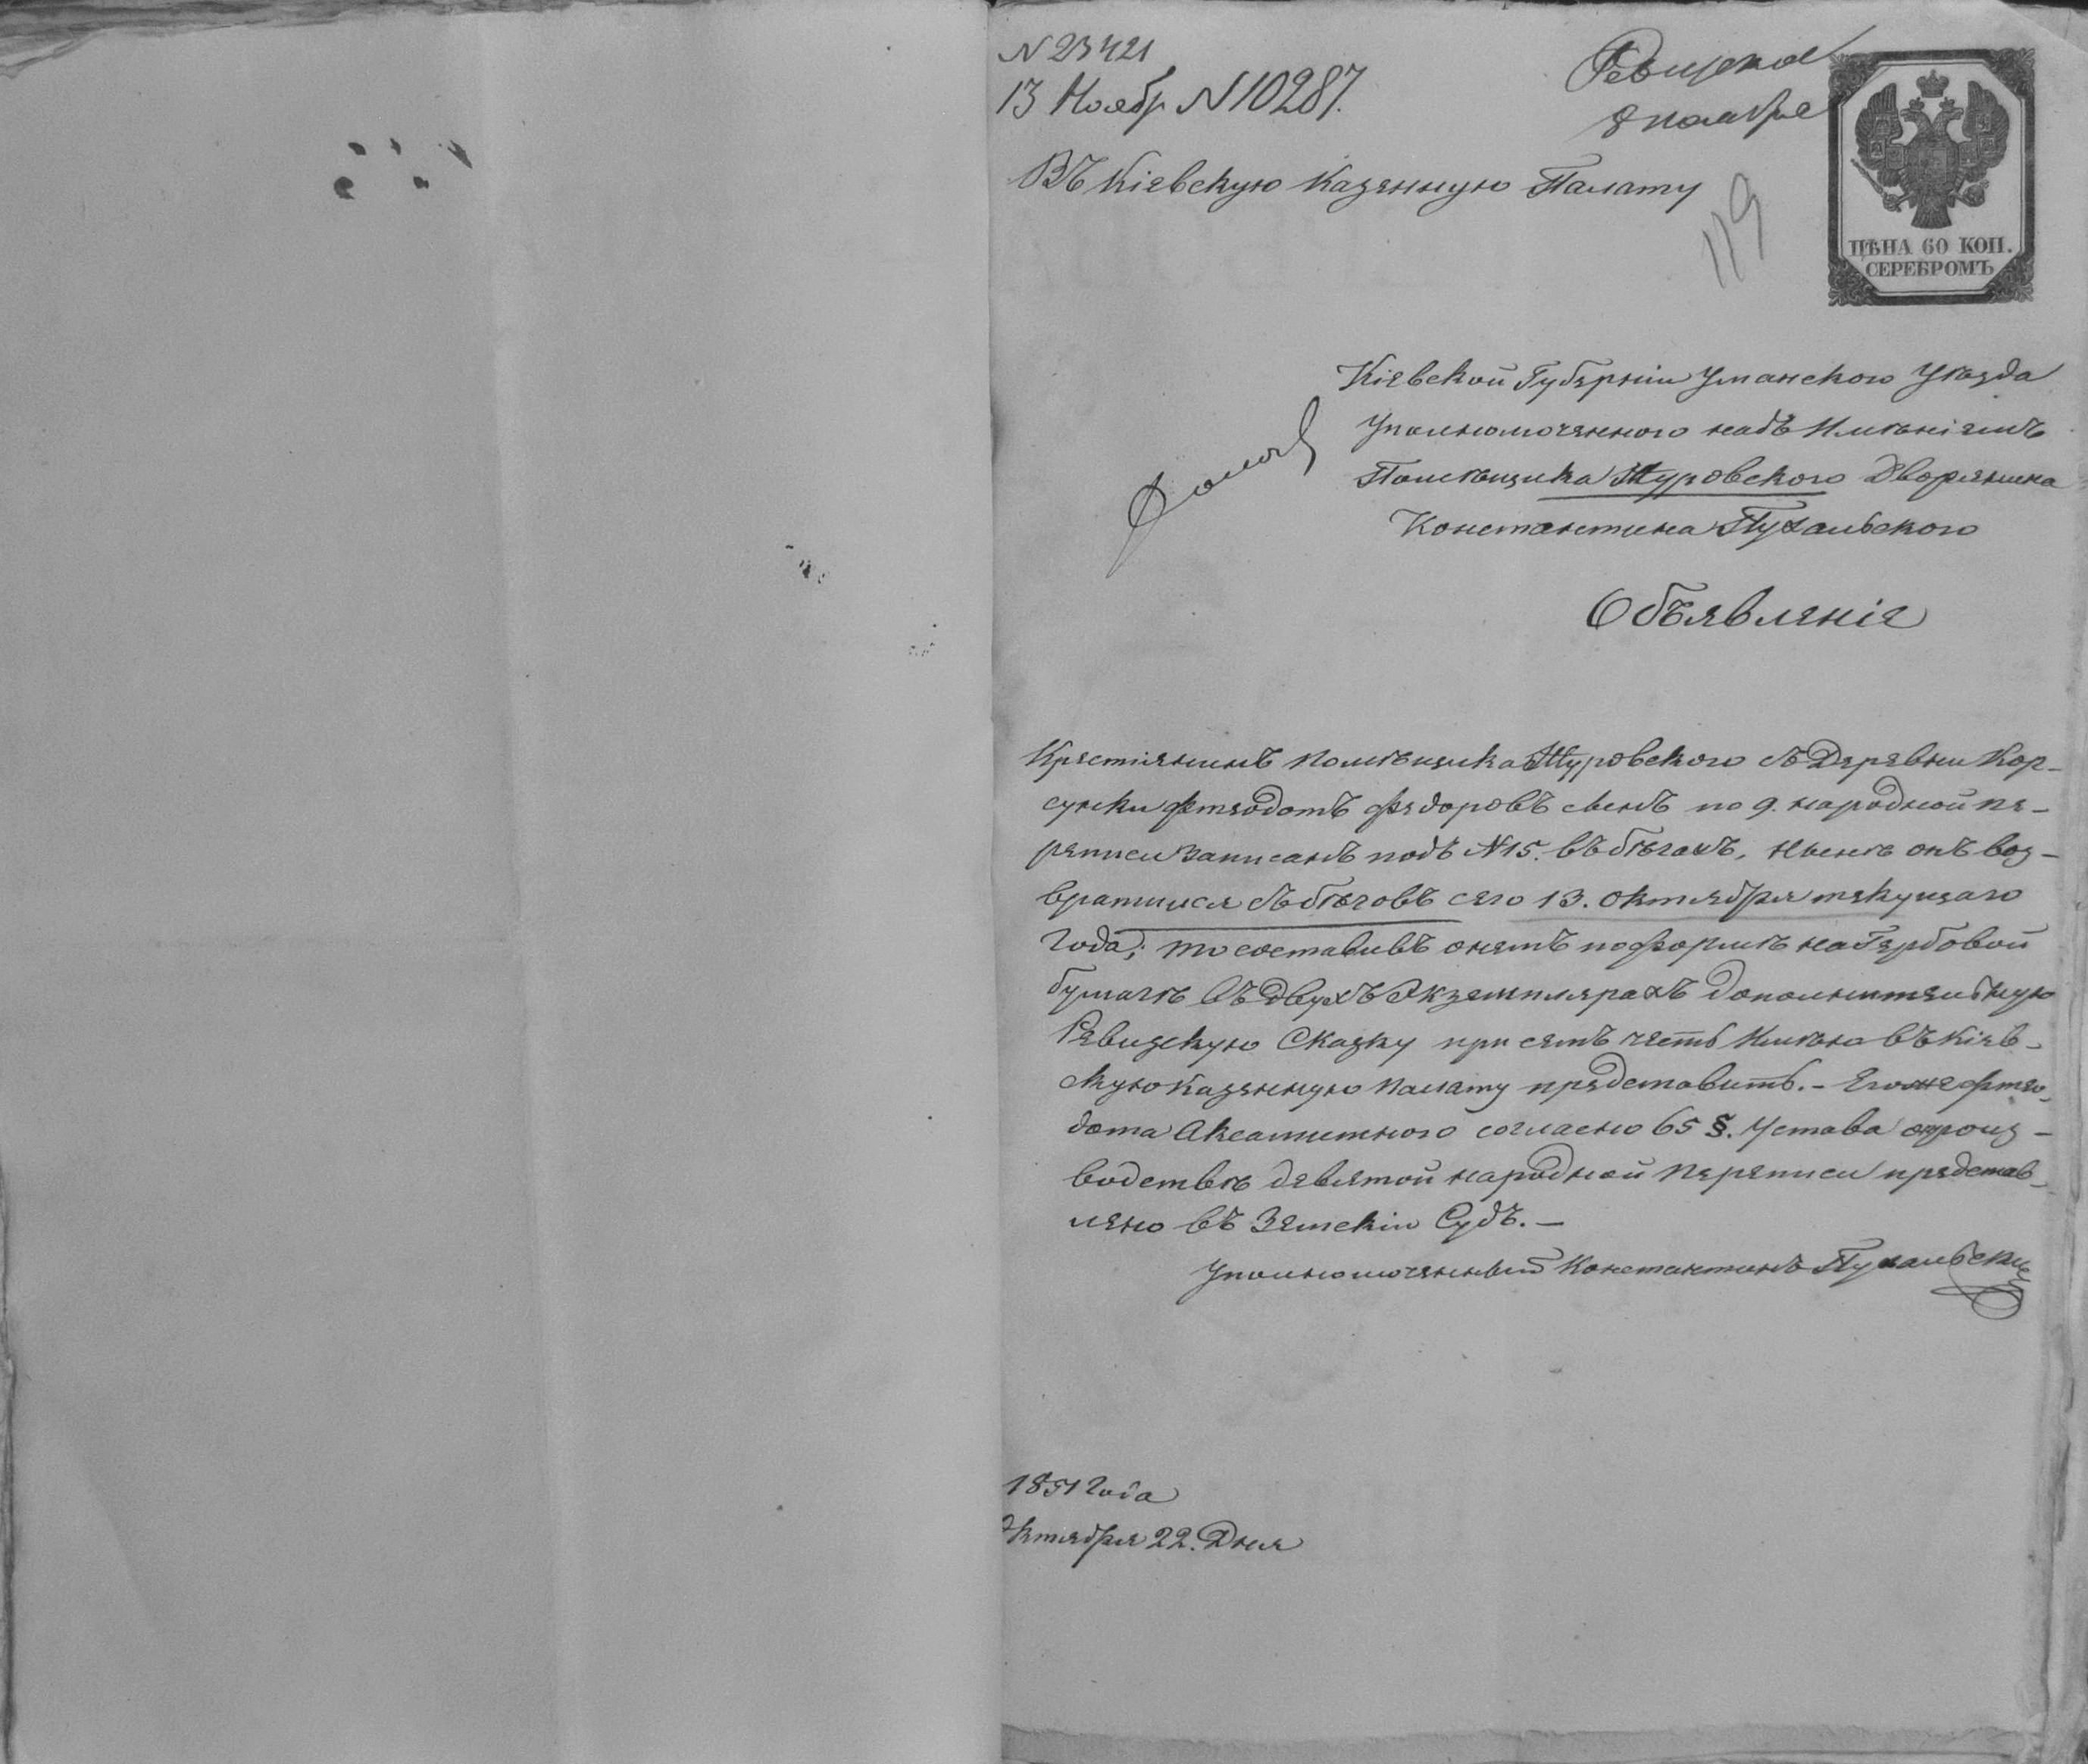 N 23421
13 Ноябр N 10287.
Ревизское
8 ноября
Въ Кіевскую Казенную Палату
119
ЦѢНА 60 КОП.
СЕРЕБРОМЪ
Кіевской Губерніи Уманского Уѣзда
Уполномоченного надъ Имѣніемъ
Помѣщика Журовского Дворянина
Константина Пухальского
Объявленіе
Крестіянинъ помѣщика Журовского съ Деревни Кор-
сунки Фтеодотъ Федоровъ сынъ по 9. народной пе-
реписи записанъ подъ N 15. въ бѣгахъ, нынѣ онъ воз-
вратился съ бѣговъ сего 13. октября текущаго
года; то составивъ онемъ по формѣ на Гербовой
бумагѣ въ двухъ Экземплярахъ дополнительную
Ревизскую Сказку при семъ честь Имѣю въ Кіев-
скую Казенную палату представить. - Егоже Фтео-
дота согласно 65 §. Устава опроиз-
водствѣ девятой народной переписи представ-
лено въ Земскій Судъ. —
Уполномоченный Константинъ Пухальскій
1851 года
Октября 22. Дня